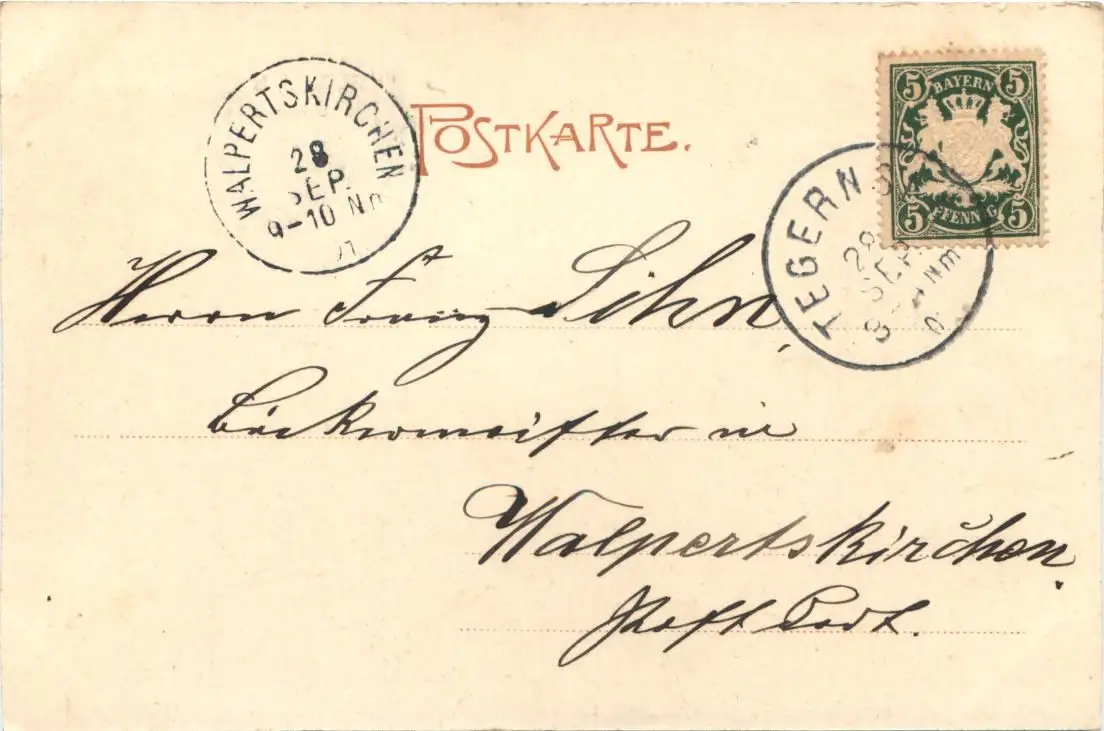 WALPERTSKIRCHEN
28
SEP.
9-10 Nm
POSTKARTE.
5 BAYERN 5
5 PFENNIG 5
TEGERNS
28
SEP.
8- Nm
Herrn Franz Sihn,
Bäckermeister in
Walpertskirchen.
Post